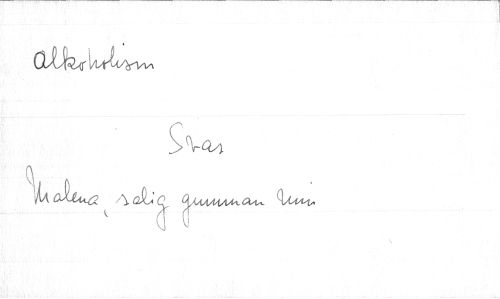 alkoholism
Svar
Malena, salig gumman min